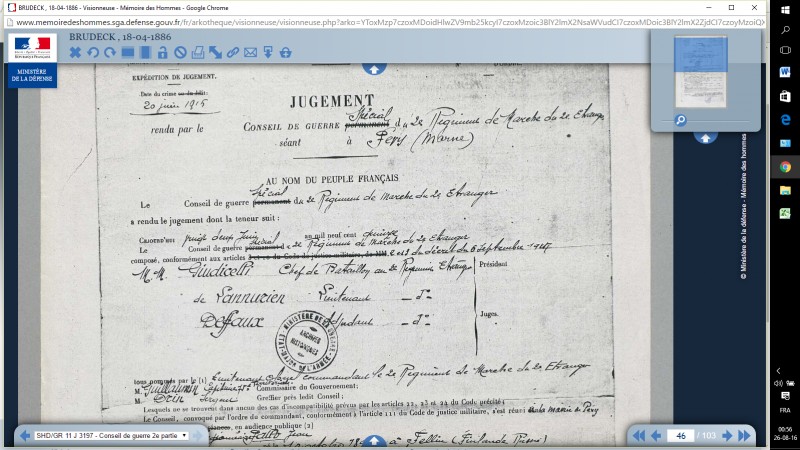 BRUDECK , 18-04-1886 - Visionneuse - Mémoire des Hommes - Google Chrome
www.memoiredeshommes.sga.defense.gouv.fr/fr/arkotheque/visionneuse/visionneuse.php?arko=
BRUDECK , 18-04-1886
MINISTÈRE
DE LA DÉFENSE
EXPÉDITION DE JUGEMENT.
Date du crime ou du délit:
20 juin 1915
JUGEMENT
rendu par le
CONSEIL DE GUERRE permanent Spécial du 2e Régiment de Marche du 2e Etranger
séant à Pévy (Marne)
AU NOM DU PEUPLE FRANÇAIS
Le Conseil de guerre permanent Spécial du 2e Régiment de Marche du 2e Etranger
a rendu le jugement dont la teneur suit :
CEJOURD'HUI vingt deux Juin au mil neuf cent quinze
Le Conseil de guerre permanent Spécial du 2e Régiment de Marche du 2e Etranger
composé, conformément aux articles du décret du 6 Septembre 1914
M.M. Giudicelli Chef de Bataillon au 2e Régiment Etranger Président
de Lannurien Lieutenant - do -
Deffaux Adjudant - do - Juges.
MINISTÈRE DE LA GUERRE
ARCHIVES
HISTORIQUES
tous nommés par le (1) Lieutenant commandant le 2e Régiment de Marche du 2e Etranger
M. Guillaumin Capitaine Commissaire du Gouvernement;
M. Sergent Greffier près ledit Conseil;
Lesquels ne se trouvent dans aucun des cas d'incompatibilité prévus par les articles 22, 23 et 24 du Code précité;
Le Conseil, convoqué par l'ordre du commandant, conformément à l'article 111 du Code de justice militaire, s'est réuni à la mairie de Pévy
en audience publique (2)
Jean
à Fellin (Finlande Russie)
© Ministère de la défense - Mémoire des hommes
SHD/GR 11 J 3197 - Conseil de guerre 2e partie
46 / 103
FRA
00:56
26-08-16